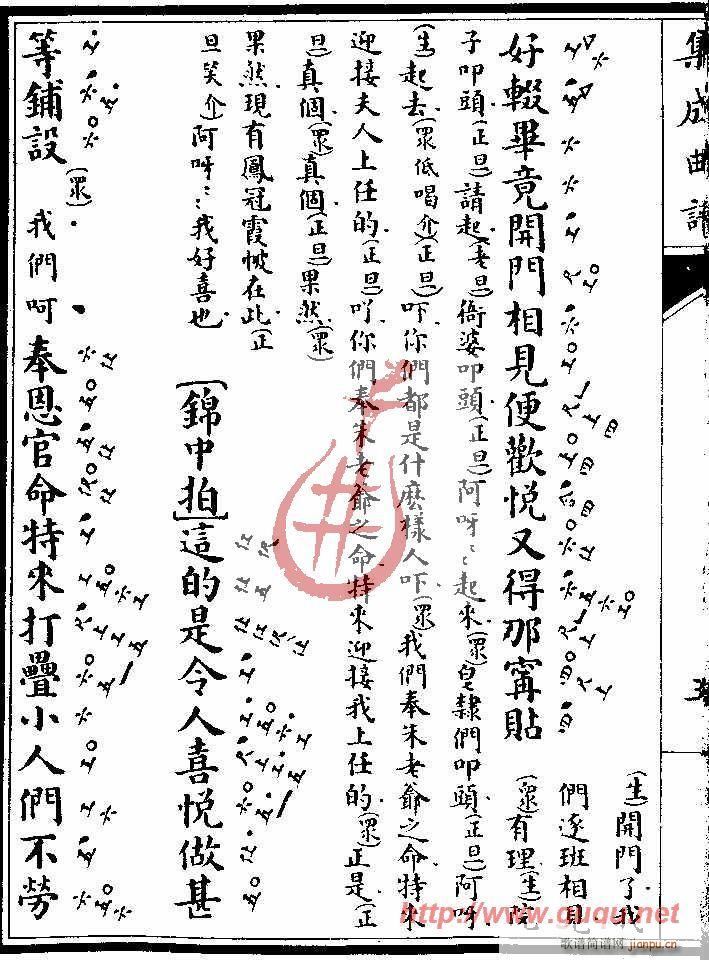 集成曲譜
(生)開門了我
們逐班相見
好輟畢竟開門相見便歡悅又得那甯貼
(眾)有理(生)院
子叩頭(正旦)請起(老旦)衙婆叩頭(正旦)阿呀〻起來(眾)皂隸們叩頭(正旦)阿呀
(生)起去(眾低唱介)(正旦)吓你們都是什麽樣人吓(眾)我們奉朱老爺之命特來
迎接夫人上任的(正旦)吖你們奉朱老爺之命特來迎接我上任的(眾)正是(正
旦)真個(眾)真個(正旦)果然(眾)
果然現有鳳冠霞帔在此(正
旦笑介)阿呀〻我好喜也
[錦中拍]這的是令人喜悅做甚
等鋪設(眾)我們呵奉恩官命特來打疊小人們不勞
http://www.guqu.net
歌谱简谱网
jianpu.cn